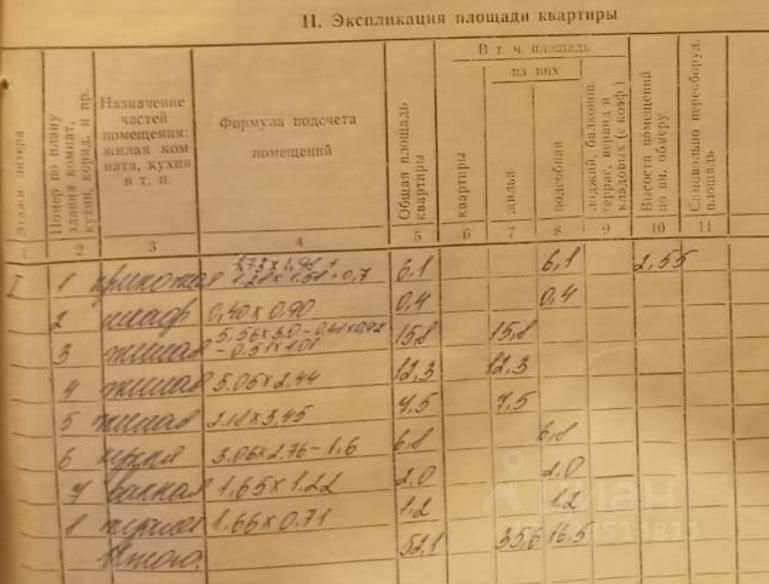 II. Экспликация площади квартиры
Этажи литера
Номер по плану здания комнат, кухни, корид. и пр.
Назначение частей помещения: жилая комната, кухня и т. п.
Формула подсчета помещений
Общая площадь квартиры
В т. ч. площадь
квартиры
из них
жилья
подсобная
лоджий, балконов террас, веранд и кладовых (с коэф.)
Высота помещений по вн. обмеру
Самовольно переоборуд. площадь
2 3 4 5 6 7 8 9 10 11
I 1 прихожая 1.21 x 1.51 + 0,7 6.1 6,1 2,55
2 шкаф 0,40 x 0.90 0,4 0,4
3 жилая 5,56 x 3.0 - 0.51 x 1.01 15.8 15,8
4 жилая 5.05 x 2.44 12,3 12.3
5 жилая 2.18 x 3.45 7.5 7,5
6 кухня 3.06 x 2.76 - 1.6 6.8 6,8
7 ванная 1.65 x 1.22 2.0 2.0
1.66 x 0.71 1.2 1,2
Итого 52,1 35,6 16.5
циан